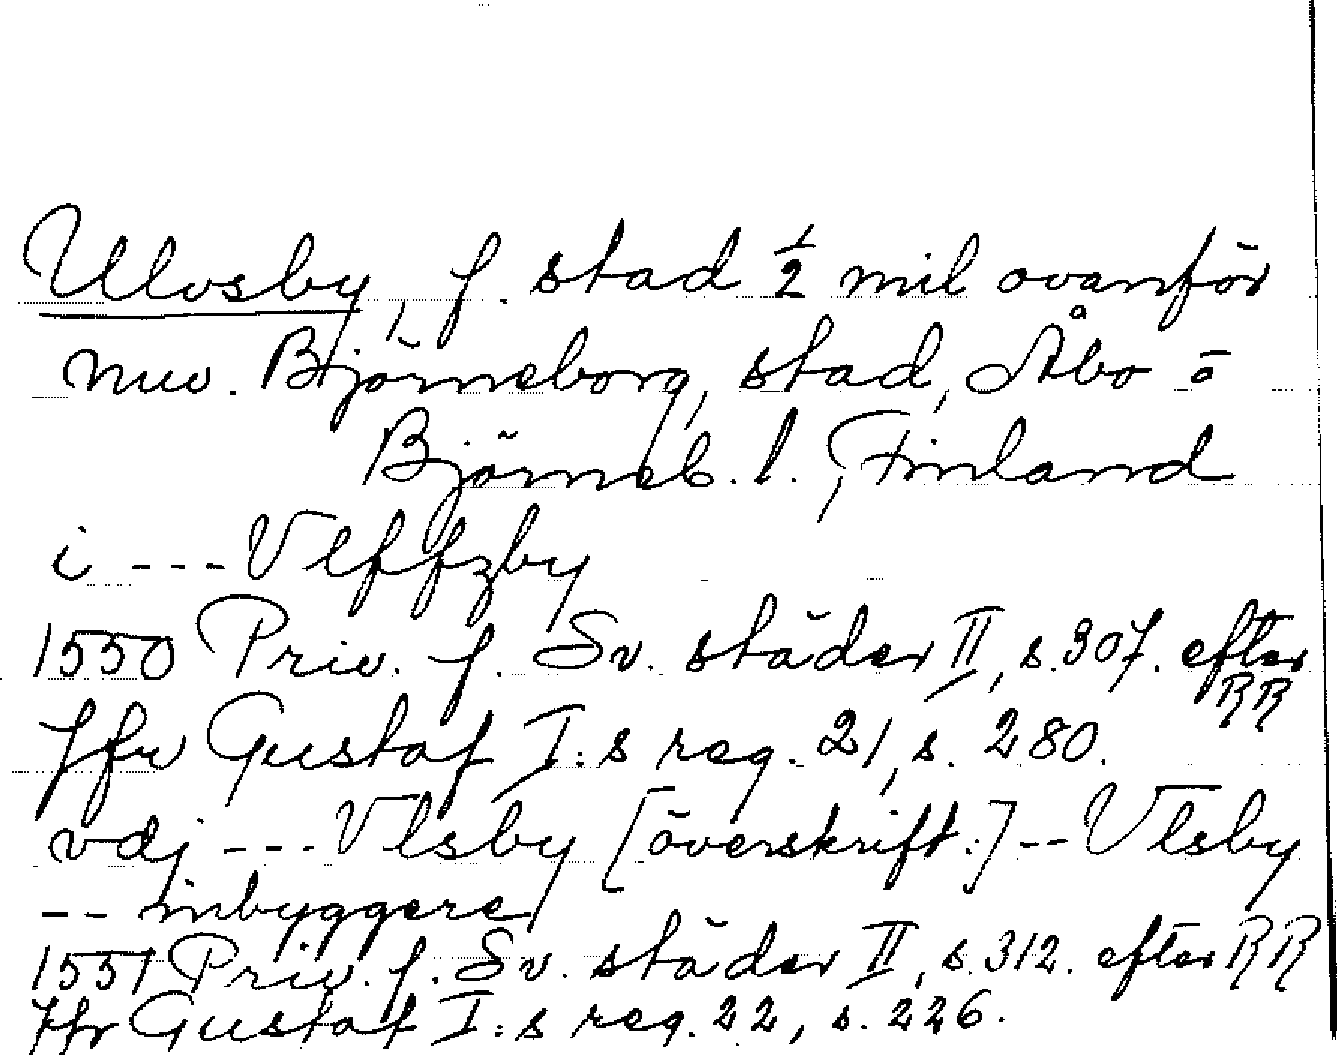 Ulvsby, f. stad ½ mil ovanför
nuv. Björneborg, stad, Åbo o
Björneb. l., Finland
i --- Vlffzby
1550 Priv. f. Sv. städer II, s. 307. efter RR
Jfr Gustaf I:s reg. 21, s. 280.
vdj --- Vlsby [överskrift.] -- Vlsby
-- inbyggere
1551 Priv. f. Sv. städer II, s. 312. efter RR
Jfr Gustaf I:s reg. 22, s. 226.